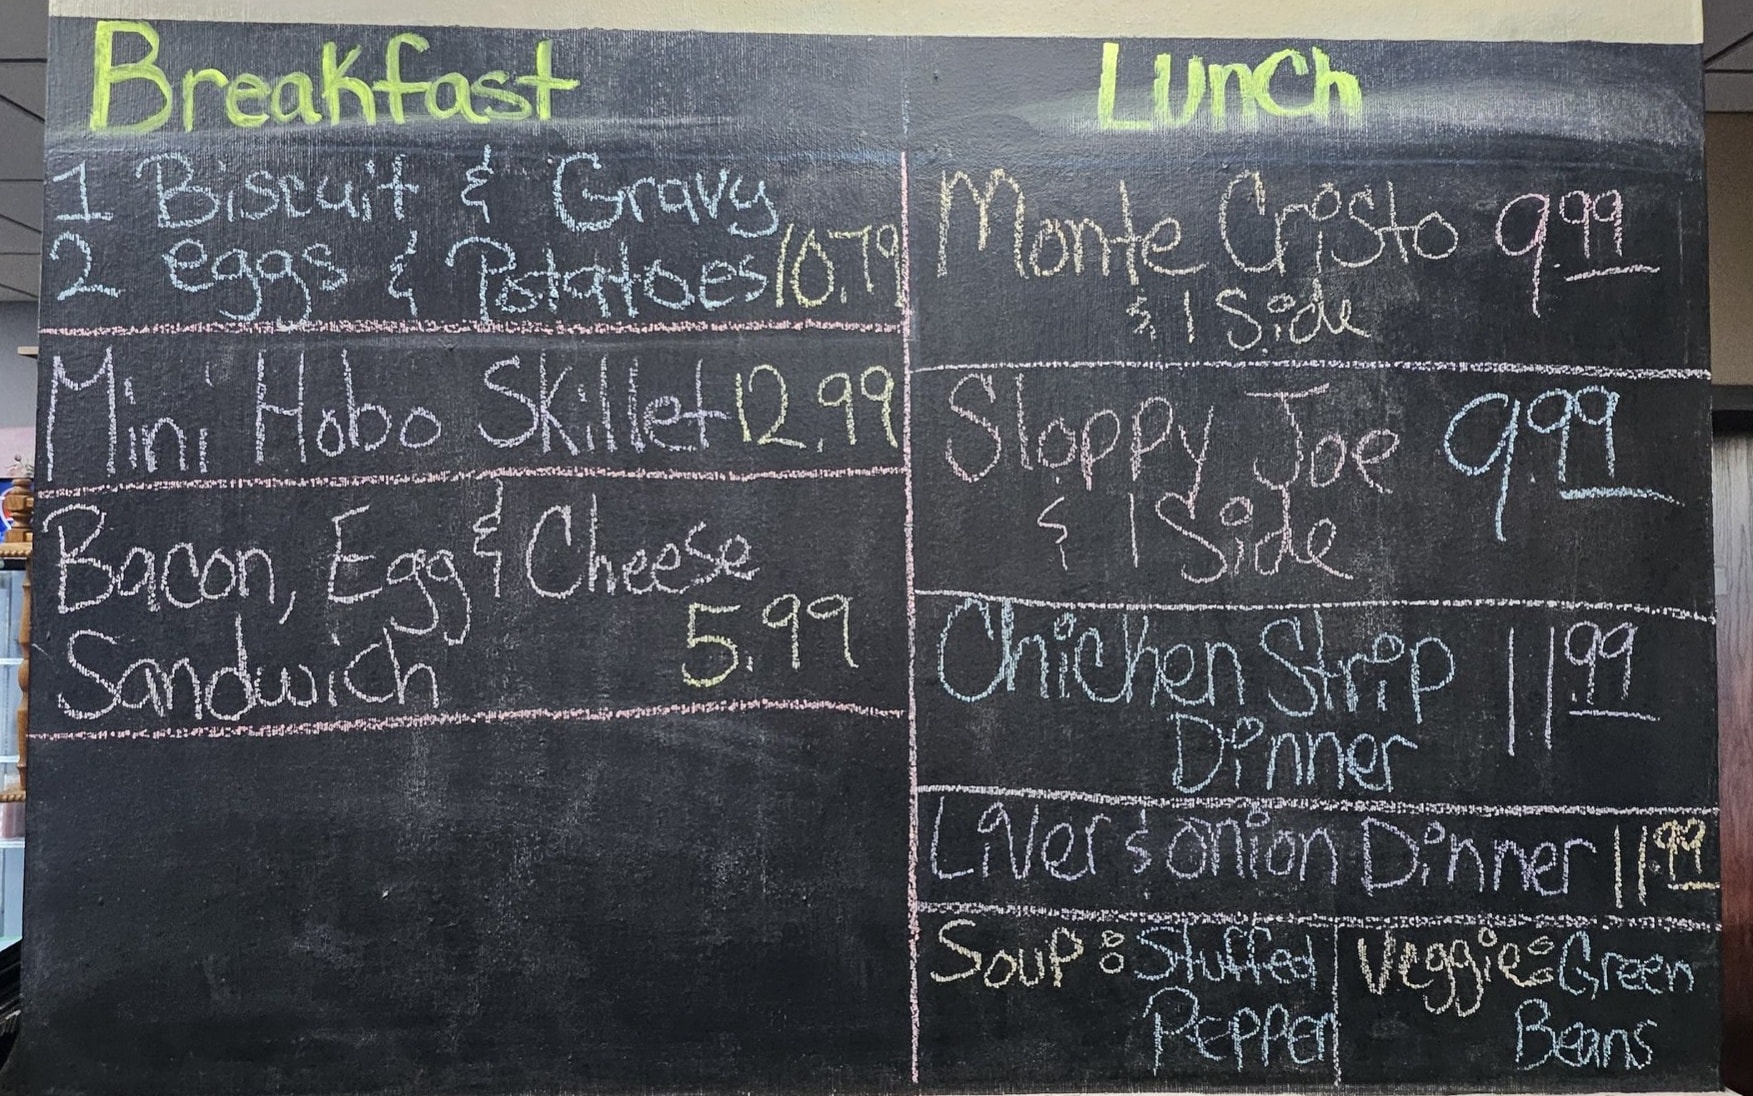 Breakfast
1 Biscuit & Gravy
2 eggs & Potatoes 10.79
Mini Hobo Skillet 12.99
Bacon, Egg & Cheese
Sandwich 5.99
Lunch
Monte Cristo 9.99
& 1 Side
Sloppy Joe 9.99
& 1 Side
Chicken Strip 11.99
Dinner
Liver & onion Dinner 11.99
Soup: Stuffed
Pepper
Veggie: Green
Beans